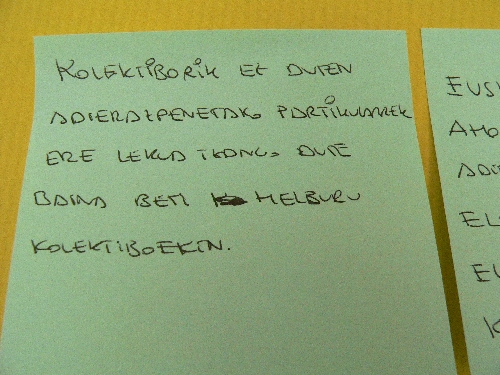 KOLEKTIBORIK EZ DUTEN
ADIERAZPENETAKO PARTIKULARREK
ERE LEKUA IZANGO DUTE
BAINA BETI HELBURU
KOLEKTIBOEKIN.
EUS
AHO
ADI
EL
EU
K